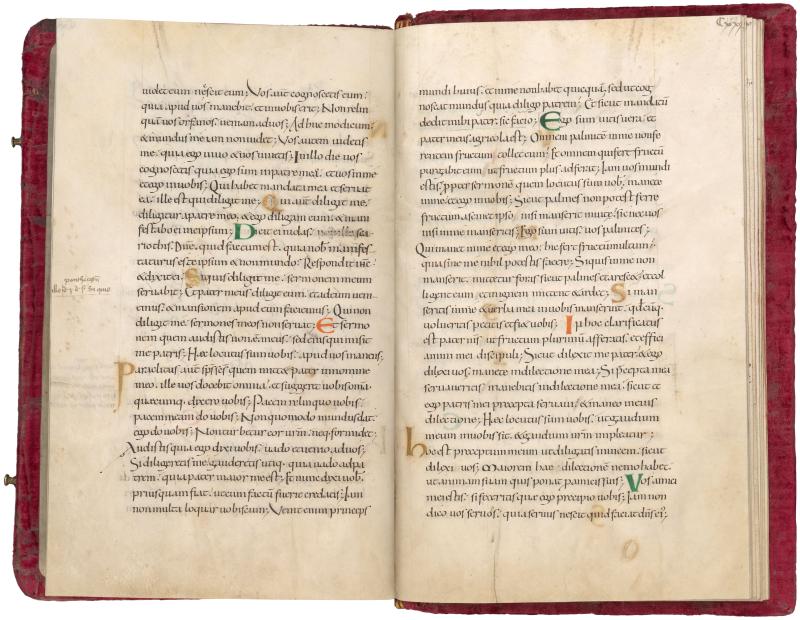 uidet eum nescit eum; Vos aut cognoscetis eum;
quia apud uos manebit et in uobis erit; Non relin
quā uos orfanos ueniam ad uos; Adhuc modicum
& mundus me iam non uidet; Vos autem uidetis
me quia ego uiuo & uos uiuetis; In illo die uos
cognoscetis quia ego sum in patre meo et uos in me
et ego in uobis; Qui habet mandata mea et seruat
ea ille est qui diligit me; Qui aut diligit me
diligetur a patre meo & ego diligam eum & mani
festabo ei me ipsum; Dicit ei iudas
Dn̄e quid factum est quia nob manifes
taturus es te ipsum & non mundo; Respondit
& dixit ei; Siquis diligit me sermonem meum
seruabit; Et pater meus diligit eum et ad eum ueni
emus et mansionem apud eum faciemus; Qui non
diligit me sermones meos non seruat; Et sermo
nem quem audistis non est meus sed eius qui misit
me patris; Haec locutus sum uobis apud uos manens;
Paraclitus aut sps scs quem mittet pater in nomine
meo ille uos docebit omnia et suggeret uobis omā
quaecumq dixero uobis; Pacem relinquo uobis
pacem meam do uobis; Non quomodo mundus dat
ego do uobis; Non turbetur cor urm neq formidet;
Audistis quia ego dixi uobis uado et uenio ad uos;
Si diligeretis me gauderetis utiq quia uado ad pa
trem quia pater maior me est; Et nunc dixi uob
priusquam fiat ut cum factū fuerit credatis; Iam
non multa loquar uobiscum; Venit enim princeps
Cxxxv
mundi huius et in me non habet quicquā sed ut cog
noscat mundus quia diligo patrem; Et sicut mandatū
dedit mihi pater sic facio; Ego sum uitis uera et
pater meus agricola est; Omnem palmitē in me non fe
rentem fructum tollet eum; Et omnem qui fert fructū
purgabit eum ut fructum plus adferat; Iam uos mundi
estis ppter sermonē quem locutus sum uob manete
in me et ego in uobis; Sicut palmes non potest ferre
fructum a semet ipso nisi manserit in uite sic nec uos
nisi in me manseritis; Ego sum uitis uos palmites;
Qui manet in me et ego in eo hic fert fructū multum;
quia sine me nihil potestis facere; Siquis in me non
manserit mittetur foras sicut palmes et arescet et col
ligent eum et in ignem mittent & ardet; Si man
seritis in me & uerba mea in uobis manserint
uolueritis petetis et fiet uobis; In hoc clarificatus
est pater ms ut fructum plurimū afferatis et effici
amini mei discipuli; Sicut dilexit me pater & ego
dilexi uos manete in dilectione mea; Si precepta mea
seruaueritis manebitis in dilectione mea sicut et
ego patris mei precepta seruaui & maneo in eius
dilectione; Haec locutus sum uobis ut gaudium
meum in uobis sit & gaudium urm impleatur;
hoc est preceptum meum ut diligatis inuicem sicut
dilexi uos Maiorem hac dilectionē nemo habet
ut animam suam quis ponat p amicis suis; Vos amici
mei estis si feceritis que ego precipio uobis; Iam non
dico uos seruos quia seruus nescit quid faciat dn̄s ei;